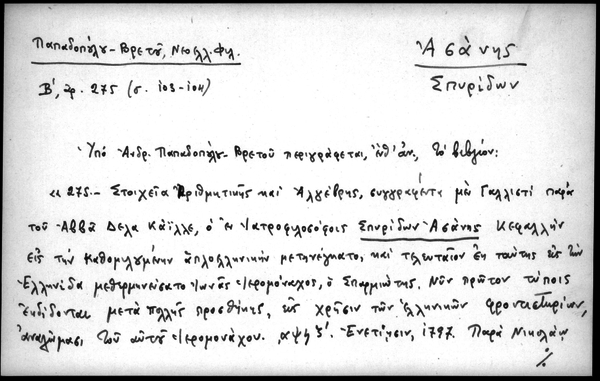 Παπαδοπούλου-Βρετοῦ, Νεοελλ. Φιλ.
Ἀσάνης
Σπυρίδων
Β', ἀρ. 275 (σ. 103-104)
Ὑπὸ Ἀνδρ. Παπαδοπούλου-Βρετοῦ περιγράφεται, ἔνθ' ἀν., τὸ βιβλίον:
« 275.- Στοιχεῖα Ἀριθμητικῆς καὶ Ἀλγέβρης, συγγραφέντα μὲν Γαλλιστὶ παρὰ
τοῦ Ἀββᾶ Δελα Κάϊλλε, ὁ ἐν Ἰατροφιλοσόφοις Σπυρίδων Ἀσάνης Κεφαλλὴν
εἰς τὴν καθομιλημένην ἁπλοελληνικὴν μετηνέγκατο, καὶ τελευταῖον ἐκ ταύτης εἰς τὴν
Ἑλληνίδα μεθερμηνεύσατο Ἰωνᾶς Ἱερομόναχος, ὁ Σπαρμιώτης. Νῦν πρῶτον τύποις
ἐκδίδονται μετὰ πολλῆς προσθήκης, εἰς χρῆσιν τῶν Ἑλληνικῶν φροντιστηρίων,
ἀναλώμασι τοῦ αὐτοῦ Ἱερομονάχου. ͵αψϟζ'. Ἐνετίῃσιν, 1797. Παρὰ Νικολάῳ
./.